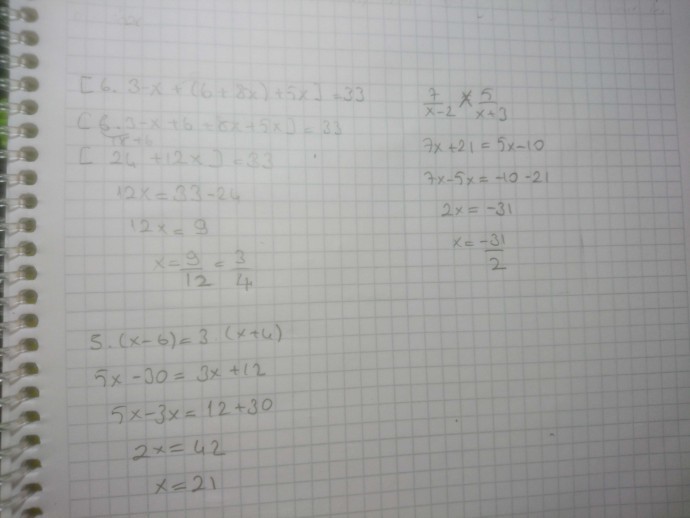 [6. 3-x + (6 + 8x) + 5x] = 33
[6. 3-x + 6 + 8x + 5x] = 33
18+6
[ 24 + 12x ] = 33
12x = 33 - 24
12x = 9
x = 9/12 = 3/4
5. (x-6) = 3. (x+4)
5x - 30 = 3x + 12
5x - 3x = 12 + 30
2x = 42
x = 21
7/x-2 × 5/x+3
7x + 21 = 5x - 10
7x - 5x = -10 - 21
2x = -31
x = -31/2